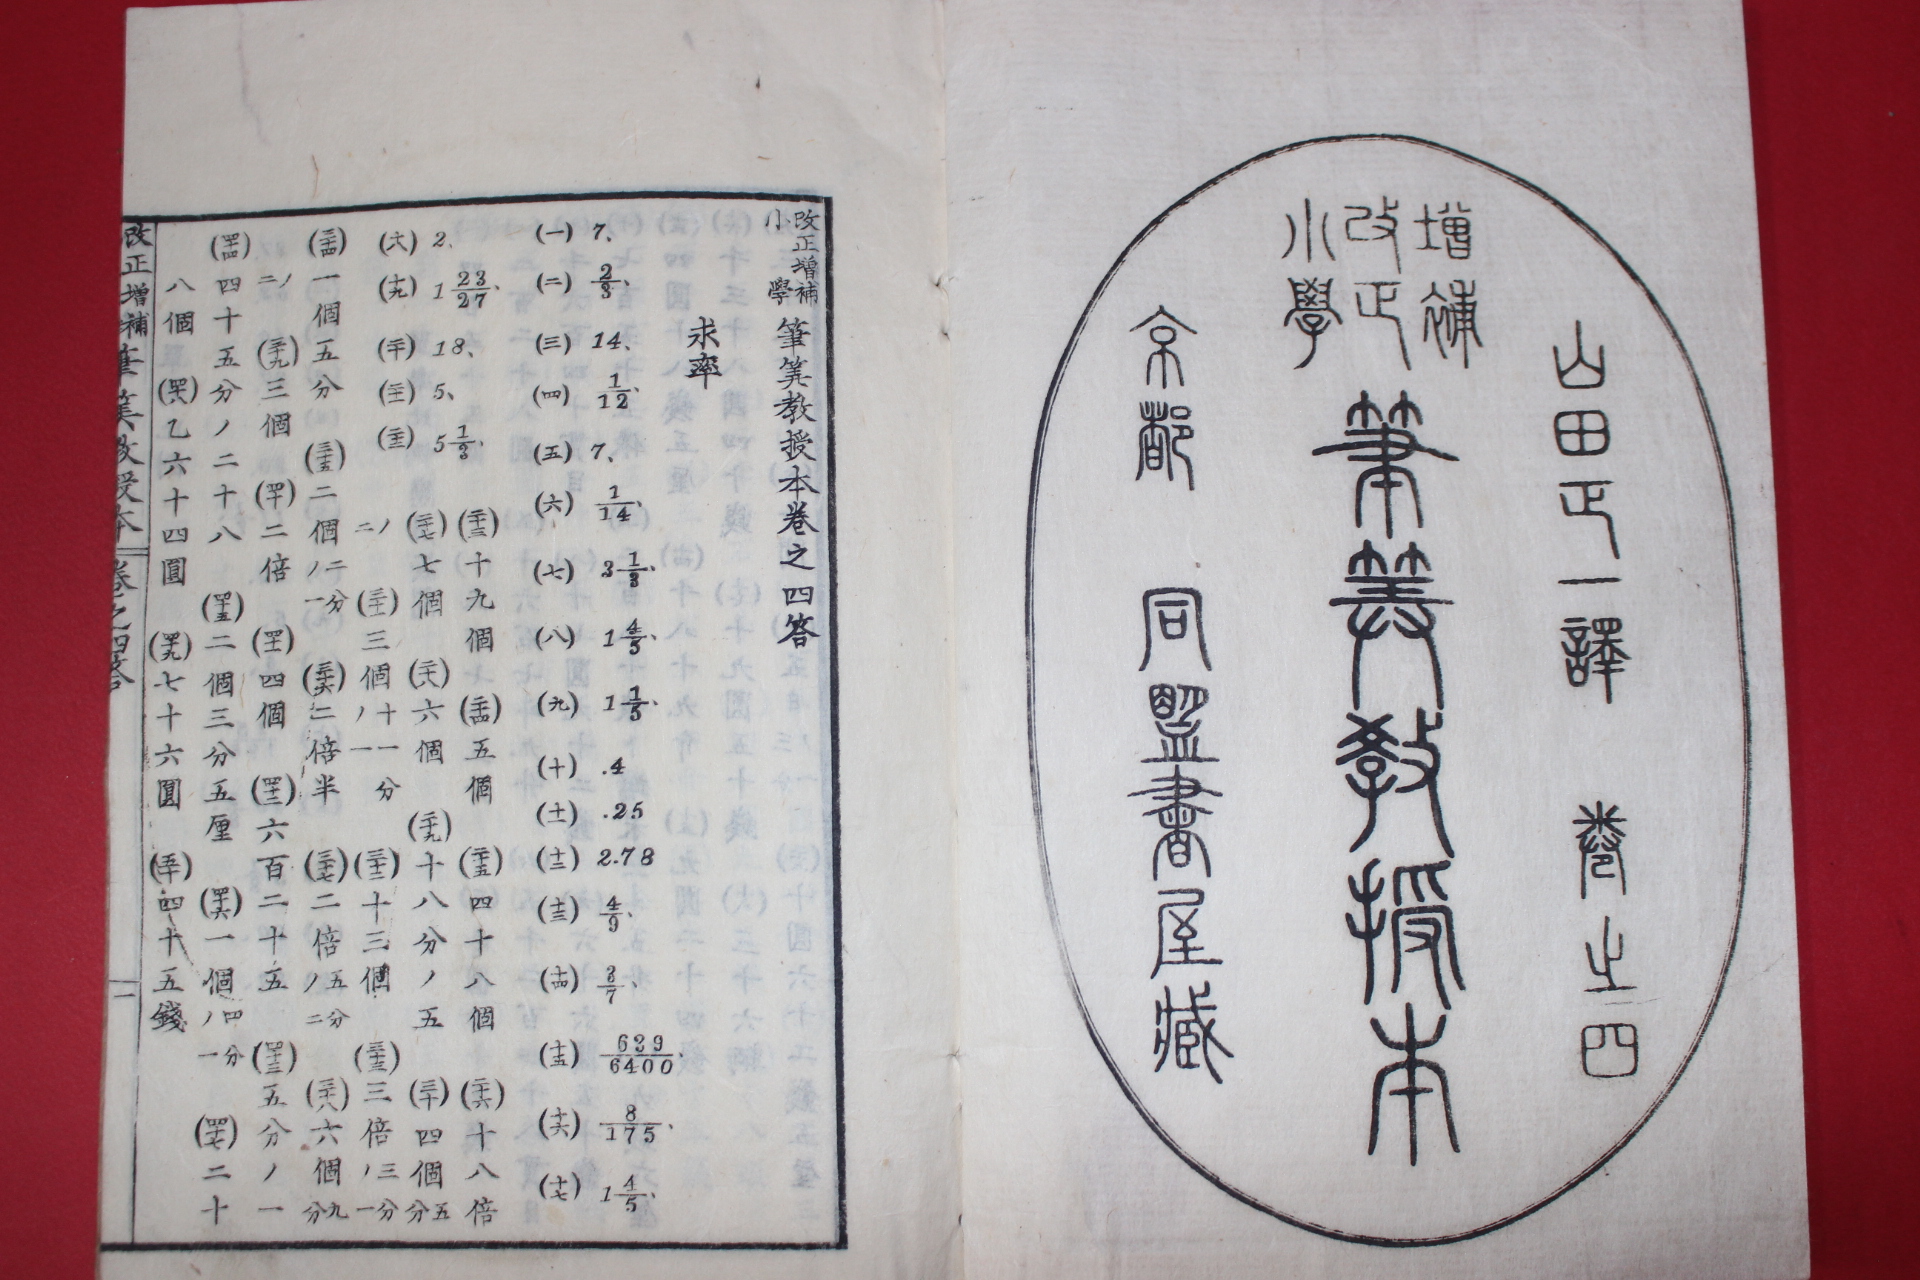 山田正一譯 卷之四
增補
改正
小學
筆算教授本
京都 同盟書屋藏
改正增補
小學
筆筭教授本卷之四答
求率
(一) 7、
(二) 2/3、
(三) 14、
(四) 1/12、
(五) 7、
(六) 1/14、
(七) 3 1/3、
(八) 1 4/5、
(九) 1 1/5、
(十) .4
(十一) .25
(十二) 2.78
(十三) 4/9、
(十四) 3/7、
(十五) 639/6400、
(十六) 8/175、
(十七) 1 4/5、
(十八) 2、
(十九) 1 23/27、
(二十) 18、
(二十一) 5、
(二十二) 5 1/3、
(二十三) 十九個 (二十四) 五個 (二十五) 四十八個 (二十六) 十八倍
(二十七) 七個 (二十八) 六個 (二十九) 十八分ノ五 (三十) 四個五分
ノ二 (三十一) 三個十一分ノ一 (三十二) 十三個 (三十三) 三倍三分ノ一
(三十四) 一個五分 (三十五) 二個二分ノ一 (三十六) 二倍半 (三十七) 二倍五分ノ二 (三十八) 六個九分
ノ二 (三十九) 三個 (四十) 二倍 (四十一) 四個 (四十二) 六百二十五 (四十三) 五分ノ一
(四十四) 四十五分ノ二十八 (四十五) 二個三分五厘 (四十六) 一個四分ノ一 (四十七) 二十
八個 (四十八) 乙六十四圓 (四十九) 七十六圓 (五十) 四十五錢
改正增補 筆筭教授本 卷之四答 一